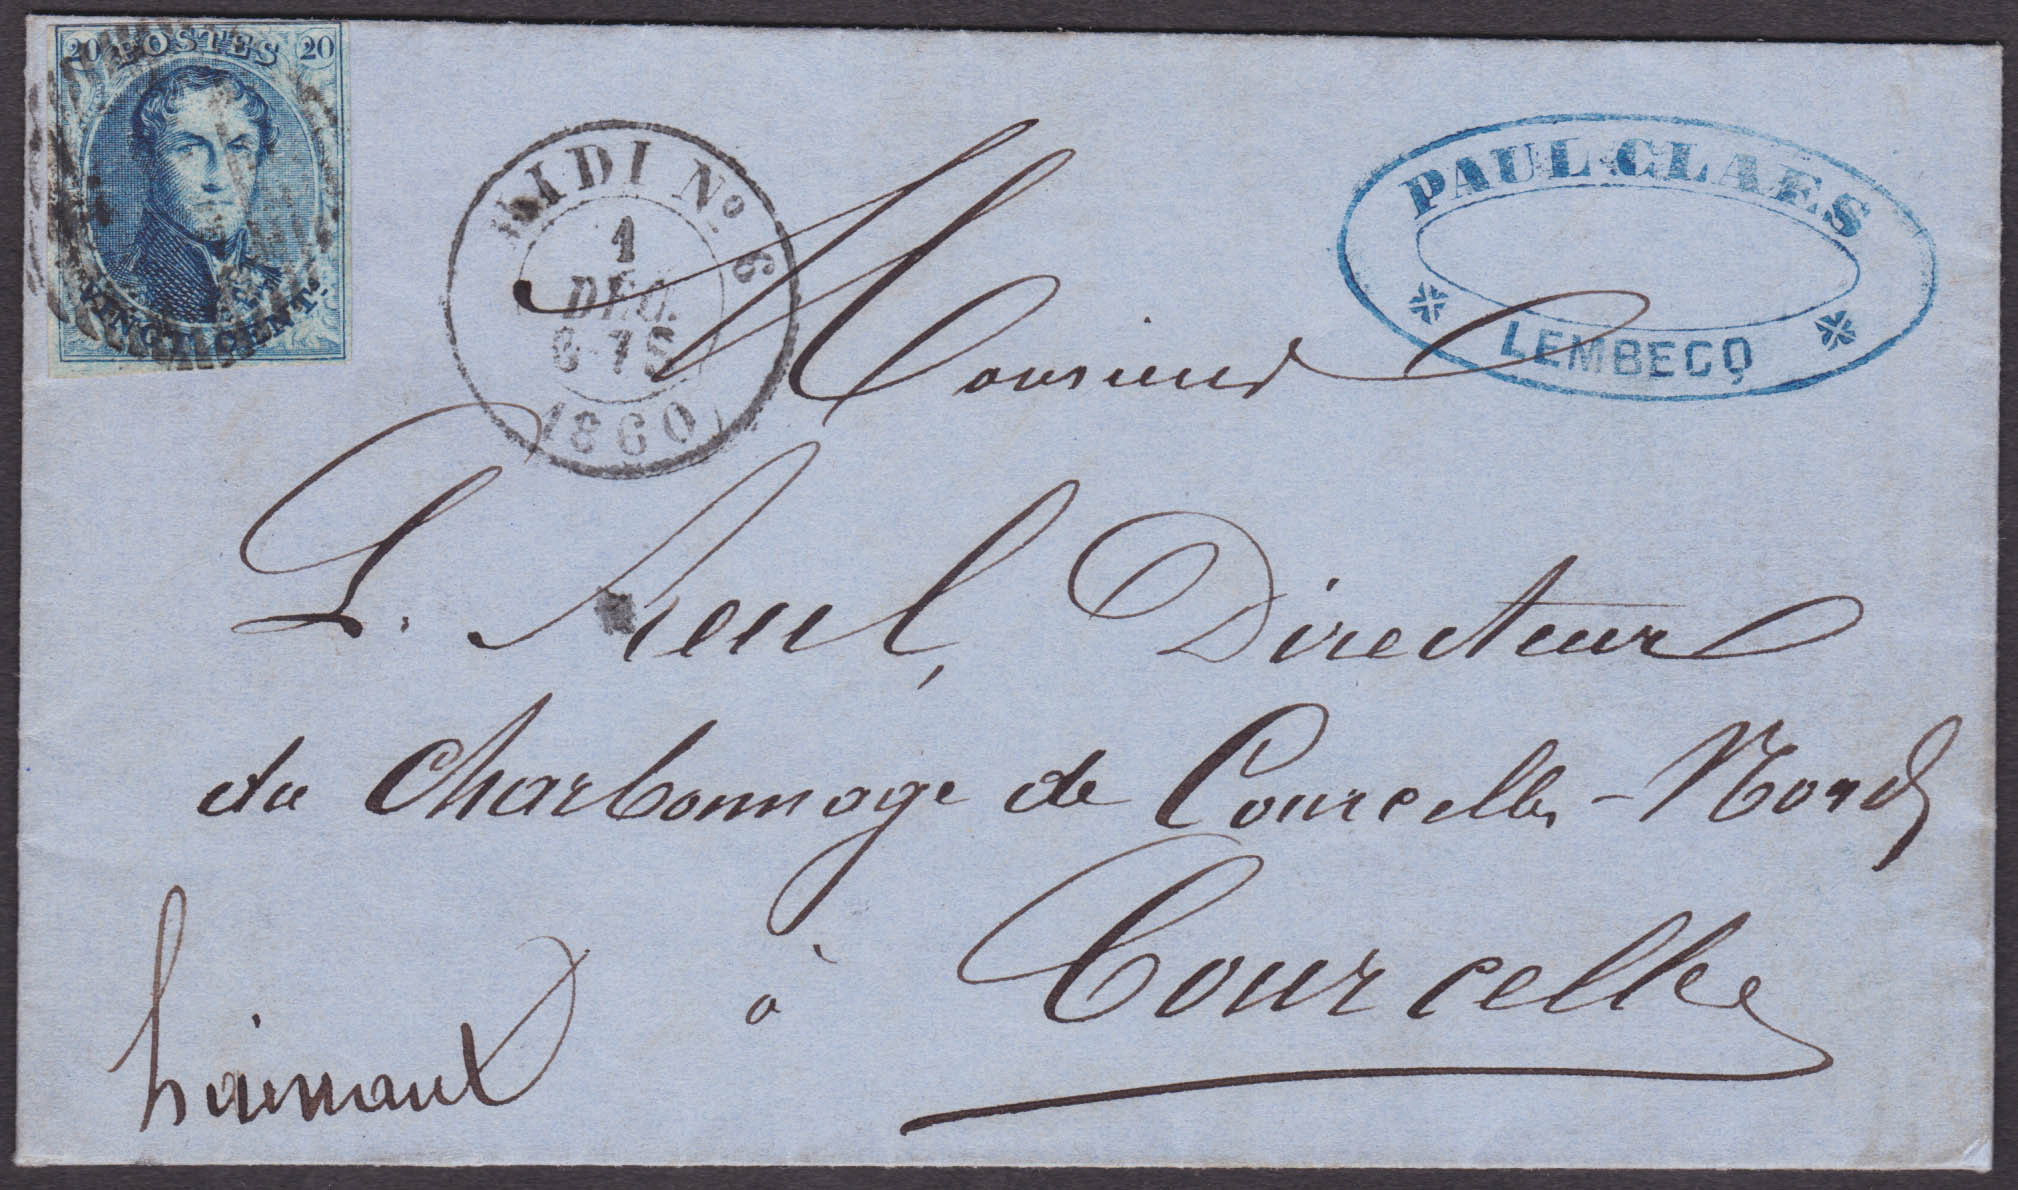 20 POSTES 20
VINGT CENT.
MIDI No 6
1
DÉC.
6-7S
1860
PAUL CLAES
LEMBECQ
Monsieur
L. Reul, Directeur
du Charbonnage de Courcelles-Nord
à Courcelles
hainaut